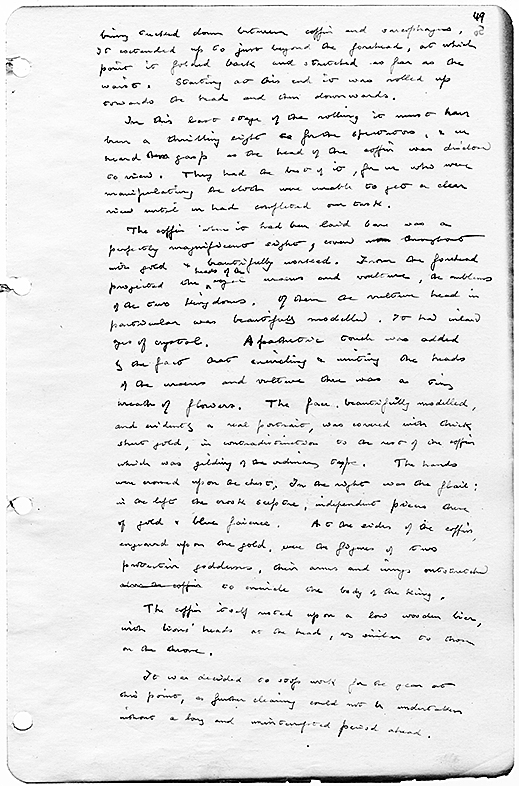 49
being tucked down between coffin and sarcophagus,
It extended up to just beyond the forehead, at which
point it folded back and stretched as far as the
waist. Starting at this end it was rolled up
towards the head and then downwards.
In this last stage of the rolling it must have
been a thrilling sight to for the spectators, & we
heard them gasp as the head of the coffin was disclosed
to view. They had the best of it, for we who were
manipulating the cloth were unable to get a clear
view until we had completed our task.
The coffin when it had been laid bare was a
perfectly magnificent sight, covered throughout
with gold & beautifully worked. From the forehead
projected the heads of the royal uraeus and vulture, the emblems
of the two kingdoms. Of them the vulture head in
particular was beautifully modelled. It had inlaid
eyes of crystal. A pathetic touch was added
by the fact that encircling & uniting the heads
of the uraeus and vulture there was a tiny
wreath of flowers. The face, beautifully modelled,
and evidently a real portrait, was covered with thick
sheet gold, in contradistinction to the rest of the coffin
which was gilding of the ordinary type. The hands
were crossed upon the chest, In the right was the flail:
in the left the crook sceptre, independent pieces these
of gold & blue faience. At the sides of the coffin,
engraved upon the gold, were the figures of two
protective goddesses, their arms and wings outstretched
to encircle the body of the King.
The coffin itself rested upon a low wooden bier,
with lions' heads at the head, as similar to those
on the throne.
It was decided to stop work for the year at
this point, as further clearing could not be undertaken
without a long and uninterrupted period ahead.